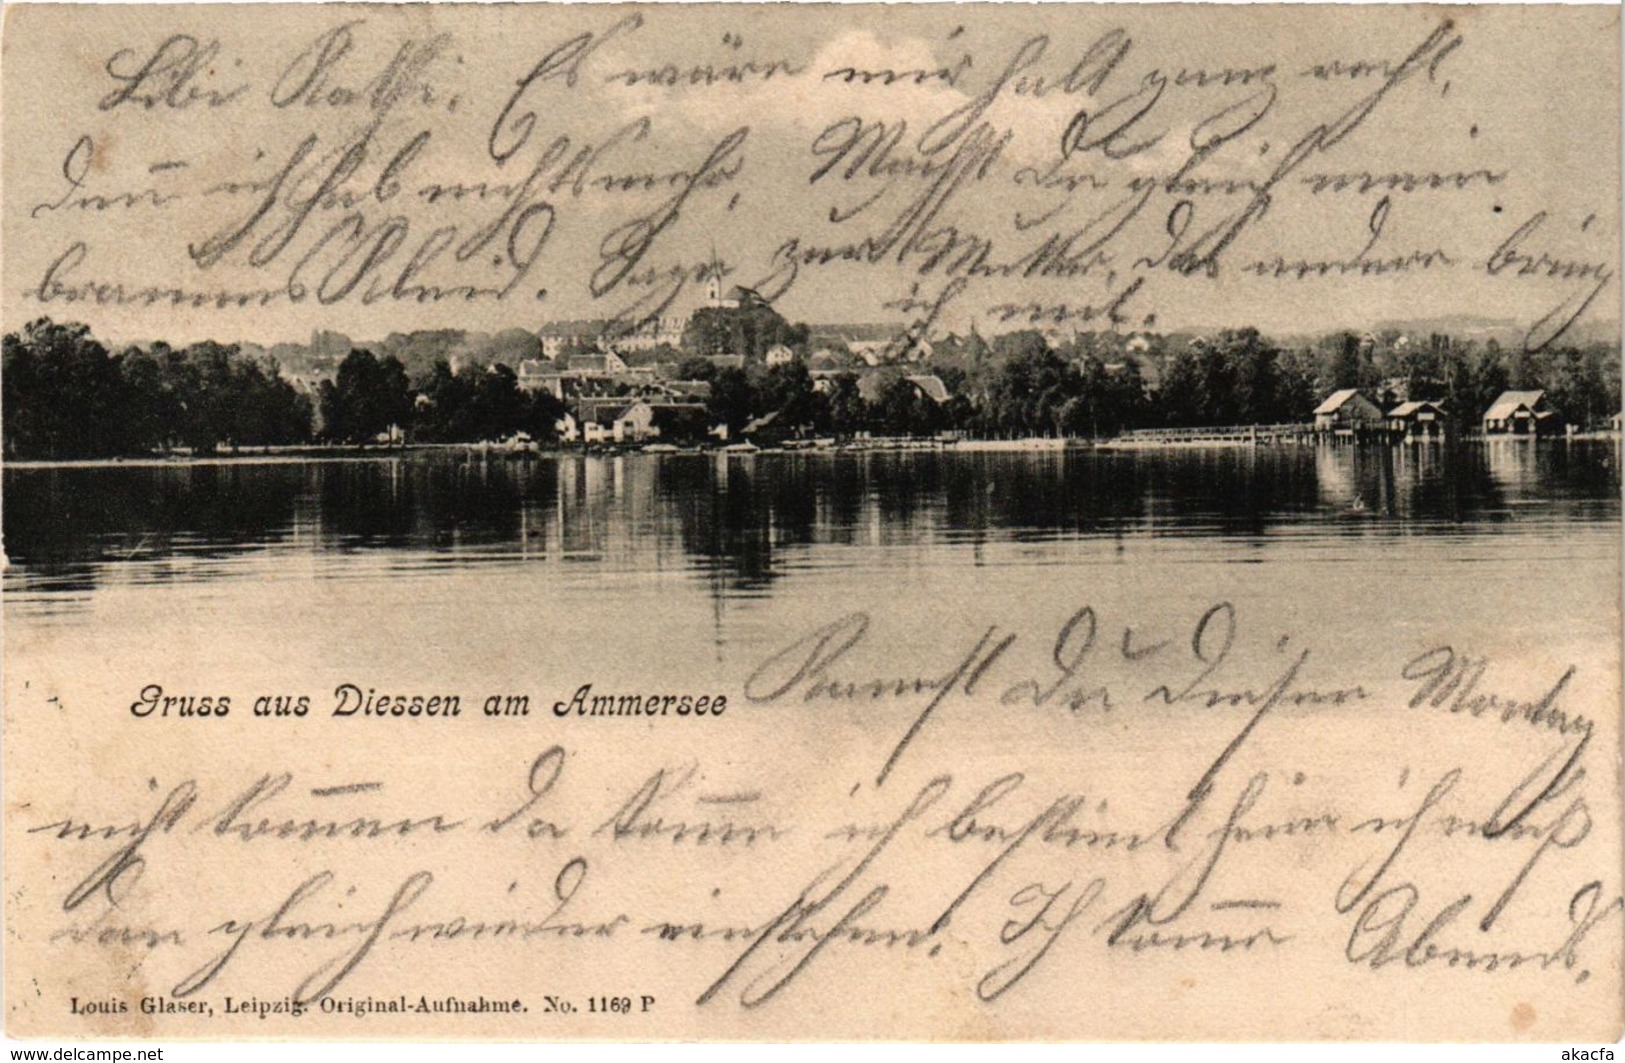 Libi Kathi. Es wäre mir halt ganz recht,
den̅ ich hab nichts mehr. Machst Du gleich mein
braunes Kleid. Sage zur Mutter, das andere bring
ich mit.
Gruss aus Diessen am Ammersee
Kannst Du diesen Montag
nicht kom̅en da kom̅e ich bestimt heim ich muß
dan gleich wieder einstehen. Ich kom̅e Abends.
Louis Glaser, Leipzig. Original-Aufnahme. No. 1169 P
www.delcampe.net
akacfa